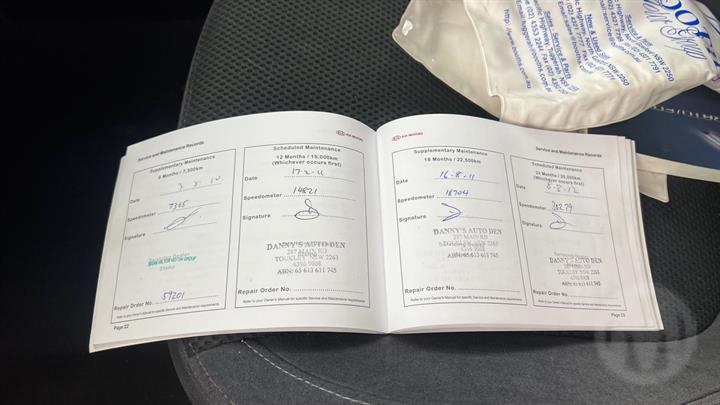 Service and Maintenance Records
Supplementary Maintenance
6 Months / 7,500km
Date
Speedometer
Signature
Servicing Dealer
Stamp
Repair Order No. 57201
Refer to your Owner's Manual for specific Service and Maintenance requirements
Page 22
KIA MOTORS
Scheduled Maintenance
12 Months / 15,000km
(Whichever occurs first)
Date 17-2-11
Speedometer 14821
Signature
DANNY'S AUTO DEN
287 MAIN RD
TOUKLEY NSW 2263
4396 9008
ABN: 65 613 611 745
Repair Order No.
Refer to your Owner's Manual for specific Service and Maintenance requirements
KIA MOTORS
Supplementary Maintenance
18 Months / 22,500km
Date 16-8-11
Speedometer 18704
Signature
DANNY'S AUTO DEN
287 MAIN RD
TOUKLEY NSW 2263
4396 9008
ABN: 65 613 611 745
Repair Order No.
Refer to your Owner's Manual for specific Service and Maintenance requirements
Service and Maintenance Records
Scheduled Maintenance
24 Months / 30,000km
(Whichever occurs first)
Date 8-2-12
Speedometer
Signature
DANNY'S AUTO DEN
287 MAIN RD
TOUKLEY NSW 2263
4396 9008
ABN: 65 613 611 745
Repair Order No.
Refer to your Owner's Manual for specific Service and Maintenance requirements
Page 23
Service & Spares
New & Used
Sales - Service & Parts